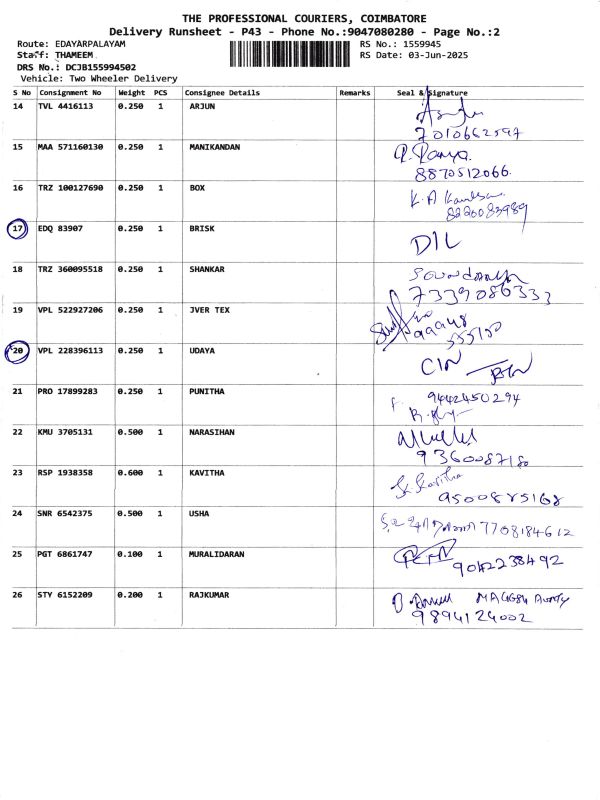 THE PROFESSIONAL COURIERS, COIMBATORE
Delivery Runsheet - P43 - Phone No.:9047080280 - Page No.:2
Route: EDAYARPALAYAM RS No.: 1559945
Staff: THAMEEM RS Date: 03-Jun-2025
DRS No.: DCJB155994502
Vehicle: Two Wheeler Delivery
S No Consignment No Weight PCS Consignee Details Remarks Seal & Signature
14 TVL 4416113 0.250 1 ARJUN
7010662597
15 MAA 571160130 0.250 1 MANIKANDAN
8870512066
16 TRZ 100127690 0.250 1 BOX
8220083989
17 EDQ 83907 0.250 1 BRISK DIL
18 TRZ 360095518 0.250 1 SHANKAR
7339086333
19 VPL 522927206 0.250 1 JVER TEX
20 VPL 228396113 0.250 1 UDAYA
21 PRO 17899283 0.250 1 PUNITHA 9442450294
22 KMU 3705131 0.500 1 NARASIHAN
9360087180
23 RSP 1938358 0.600 1 KAVITHA
9500885168
24 SNR 6542375 0.500 1 USHA 7708184612
25 PGT 6861747 0.100 1 MURALIDARAN
9042238492
26 STY 6152209 0.200 1 RAJKUMAR
9894124002